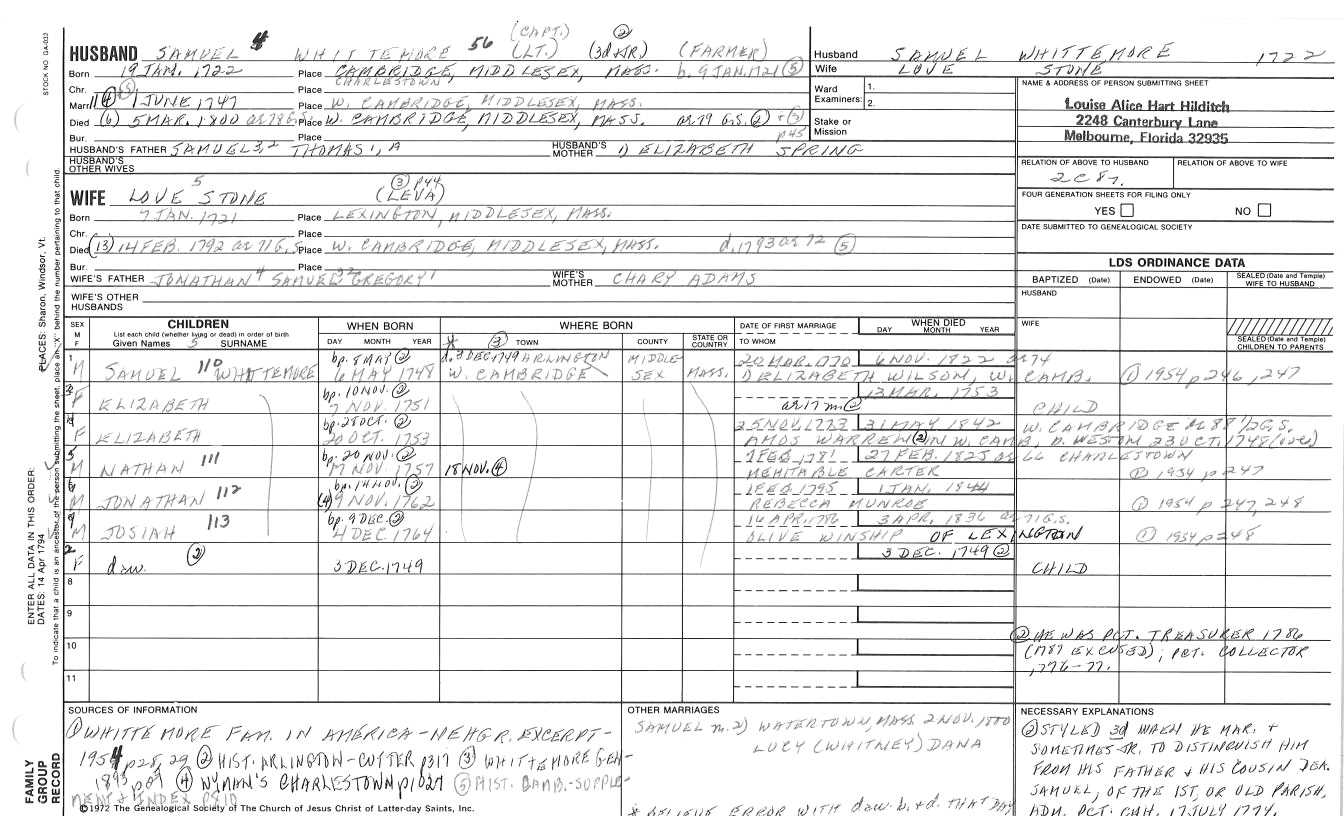 STOCK NO. GA-033
(CAPT.) ②
HUSBAND SAMUEL 4 WHITTEMORE 56 (LT.) (3d+JR) (FARMER)
Born 19 JAN. 1722 Place CAMBRIDGE, MIDDLESEX, MASS. b. 9 JAN. 1721 ⑤
CHARLESTOWN
Chr. Place
Marr. 1 JUNE, 1747 Place W. CAMBRIDGE, MIDDLESEX, MASS.
Died (6) 5 MAR. 1800 ae 79 G.S. Place W. CAMBRIDGE, MIDDLESEX, MASS. ae 79 G.S. ② + ③
p45
Bur. Place
HUSBAND'S FATHER SAMUEL 3,2 THOMAS 1, A HUSBAND'S MOTHER 1) ELIZABETH SPRING
HUSBAND'S OTHER WIVES
Husband SAMUEL WHITTEMORE 1722
Wife LOVE STONE
Ward 1.
Examiners: 2.
Stake or Mission
NAME & ADDRESS OF PERSON SUBMITTING SHEET
Louise Alice Hart Hilditch
2248 Canterbury Lane
Melbourne, Florida 32935
RELATION OF ABOVE TO HUSBAND RELATION OF ABOVE TO WIFE
2C8r.
FOUR GENERATION SHEETS FOR FILING ONLY
YES NO
DATE SUBMITTED TO GENEALOGICAL SOCIETY
WIFE LOVE 5 STONE ③ p44 (LEVA)
Born 7 JAN. 1721 Place LEXINGTON, MIDDLESEX, MASS.
Chr. Place
Died (13) 14 FEB. 1792 ae 71 G.S. Place W. CAMBRIDGE, MIDDLESEX, MASS. d. 1793 ae 72 ⑤
Bur. Place
WIFE'S FATHER JONATHAN 4 SAMUEL 3,2 GREGORY 1 WIFE'S MOTHER CHARY ADAMS
WIFE'S OTHER HUSBANDS
LDS ORDINANCE DATA
BAPTIZED (Date) ENDOWED (Date) SEALED (Date and Temple) WIFE TO HUSBAND
HUSBAND
WIFE
SEALED (Date and Temple) CHILDREN TO PARENTS
SEX M F CHILDREN WHEN BORN WHERE BORN DATE OF FIRST MARRIAGE WHEN DIED
List each child (whether living or dead) in order of birth
Given Names 5 SURNAME DAY MONTH YEAR * ③ TOWN COUNTY STATE OR COUNTRY TO WHOM DAY MONTH YEAR
1 bp. 8 MAY ② d. 3 DEC. 1749 ARLINGTON MIDDLE- 20 MAR. 1770 6 NOV. 1822 ae 74
M SAMUEL 110 WHITTEMORE 6 MAY 1748 W. CAMBRIDGE SEX MASS. 1) ELIZABETH WILSON, W. CAMB. ① 1954 p 246, 247
3 bp. 10 NOV. ② 13 MAR. 1753
F ELIZABETH 7 NOV. 1751 ae 17 m. ② CHILD
4 bp. 28 OCT. ② 25 NOV. 1773 31 MAY 1842 W. CAMBRIDGE ae 88 1/2 G.S.
F ELIZABETH 20 OCT. 1753 AMOS WARREN ② IN W. CAMB, b. WESTON 23 OCT. 1748
5 bp. 20 NOV ② 1 FEB. 1781 27 FEB. 1825 ae 66 CHARLESTOWN
M NATHAN 111 17 NOV 1757 18 NOV. ④ MEHITABLE CARTER ① 1954 p 247
6 bp. 14 NOV. ② 1 FEB. 1795 1 JAN. 1844
M JONATHAN 112 (4) 9 NOV. 1762 REBECCA MUNROE ① 1954 p 247, 248
7 bp. 9 DEC. ② 14 APR. 1786 3 APR. 1836 ae 71 G.S.
M JOSIAH 113 4 DEC 1764 OLIVE WINSHIP OF LEXINGTON ① 1954 p 248
2 3 DEC. 1749 ②
F daw. ② 3 DEC. 1749 CHILD
8
9
10
11
② HE WAS PCT. TREASURER 1786
(1787 EXCUSED); PCT. COLLECTOR
1776-77.
SOURCES OF INFORMATION
① WHITTEMORE FAM. IN AMERICA - NEHGR. EXCERPT -
1954 p 28, 29 ② HIST. ARLINGTON - CUTTER p 317 ③ WHITTEMORE GEN-
1893 ④ WYMAN'S CHARLESTOWN p 1027 ⑤ HIST. CAMB. - SUPPLE-
MENT & INDEX p 810
OTHER MARRIAGES
SAMUEL m. 2) WATERTOWN, MASS 2 NOV. 1800
LUCY (WHITNEY) DANA
* BELIEVE ERROR WITH daw. b. + d. THAT DAY
NECESSARY EXPLANATIONS
② STYLED 3d WHEN HE MAR. +
SOMETIMES JR. TO DISTINGUISH HIM
FROM HIS FATHER & HIS COUSIN DEA.
SAMUEL, OF THE 1ST, OR OLD PARISH.
ADM. PCT. CHH. 17 JULY 1774.
©1972 The Genealogical Society of The Church of Jesus Christ of Latter-day Saints, Inc.
FAMILY GROUP RECORD
ENTER ALL DATA IN THIS ORDER:
DATES: 14 Apr 1794
PLACES: Sharon, Windsor, Vt.
To indicate that a child is an ancestor of the person submitting the sheet, place an "X" behind the number pertaining to that child.